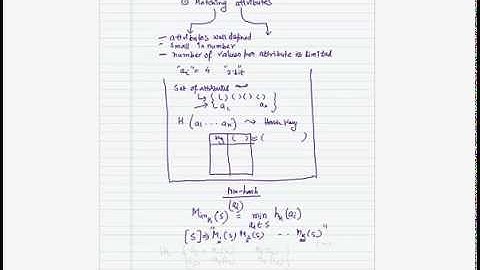 ① Matching attributes
– attributes well defined
– small in number
– number of values per attribute is limited
"aᵢ" = 4 "2-bit"
Set of attributes
↳ { ( ) ( ) ( ) ( ) }
→ a₁ aₙ
H (a₁ ... aₙ) ⇝ Hash key
Key ( ) = ( )
Min-hash
(aᵢ)
Minₕₖ(s) = min hₖ(aᵢ)
aᵢ ∈ s
[s] ⇒ "M₁(s) M₂(s) -- Mₖ(s)"